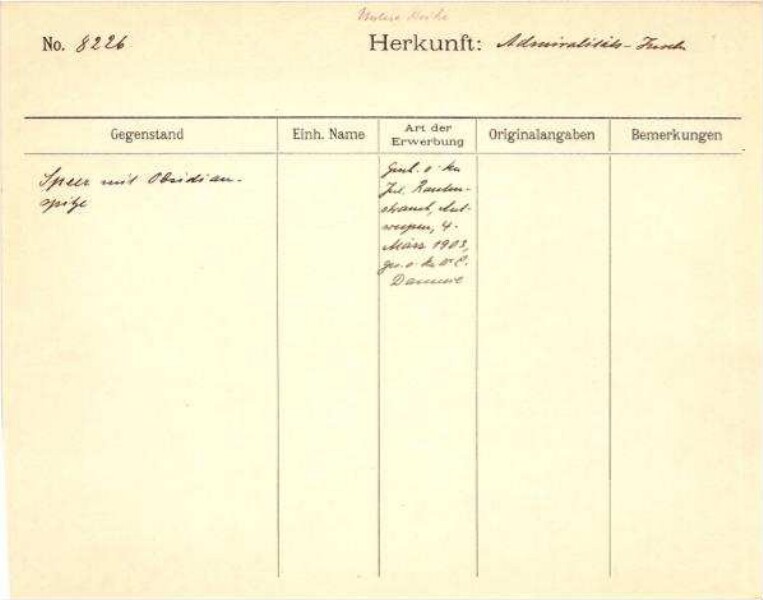 No. 8226
Herkunft: Admiralitäts-Inseln
Gegenstand
Einh. Name
Art der
Erwerbung
Originalangaben
Bemerkungen
Speer mit Obsidian-
spitze
Jul. Rauten-
strauch, Ant-
werpen, 4.
März 1903,